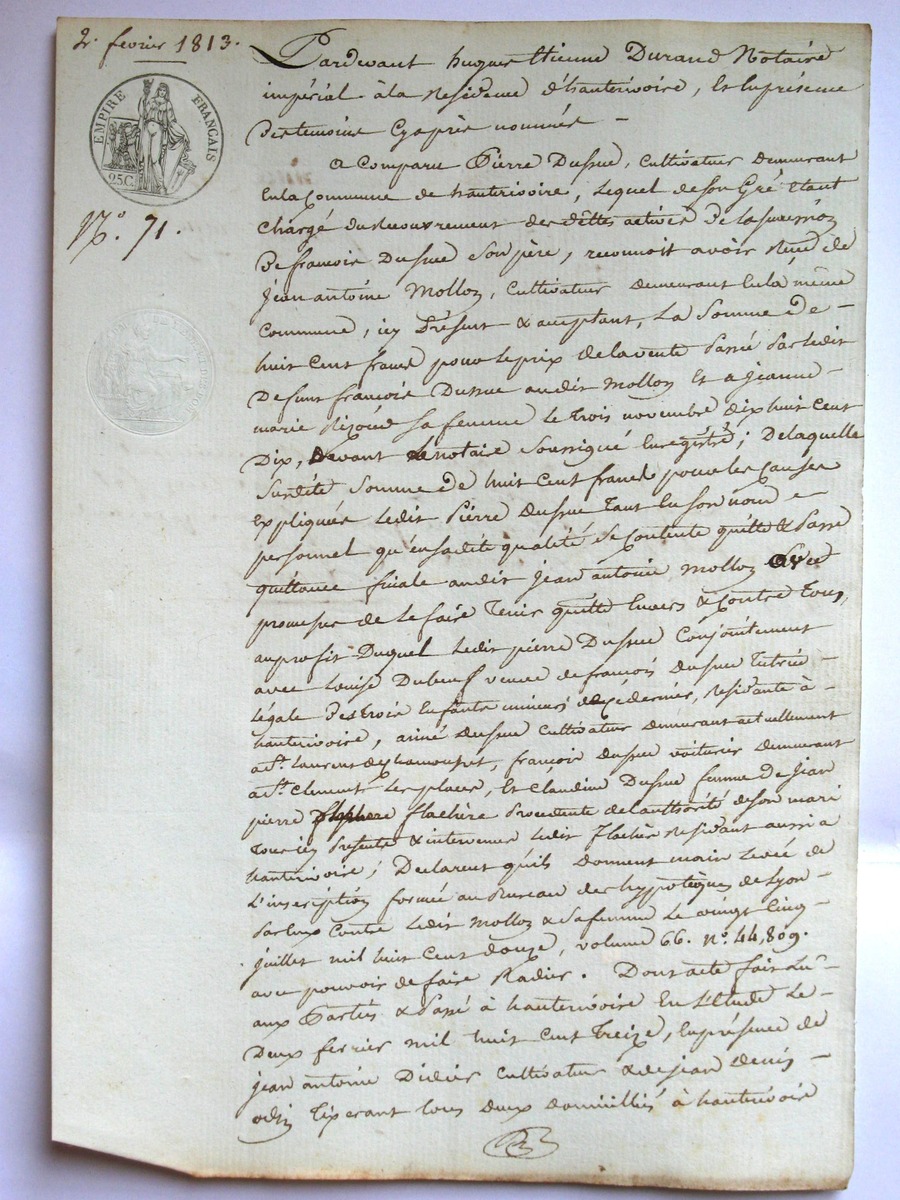 2. fevrier 1813.
EMPIRE FRANÇAIS
25C.
N.º 71.
Pardevant hugues Etienne Durand Notaire
impérial à la Residence d'hauterivoire, & En présence
Des temoins Cyaprès nommés –
a Comparu Pierre Dussue, Cultivateur demeurant
En la Commune de hauterivoire, lequel de son Gré Etant
chargé du recouvrement des dêttes activés De la succession
De francois Dussue son père, reconnoit avoir Reçu de
jean antoine Mollon, Cultivateur demeurant En la même
Commune, icy Présent & acceptant, La Somme De –
huit Cent francs pour le prix de la vente Passé Par ledit
Defunt francois Dussue audit Mollon Et a jeanne –
marie sa femme le trois novembre dix huit Cent
Dix, Devant le notaire Soussigné Enregistré; De laquelle
Susdite Somme De huit Cent francs pour les Causes
Expliquées ledit Pierre Dussue Tant En son nom –
personnel qu'en sadite qualité Se Contente quitte & Passe
quittance finale audit jean antoine Mollon avec
promesse de le faire Tenir quitte Envers & Contre Tous,
au profit Duquel Ledit pierre Dussue Conjointement
avec Louise Dubeuf veuve de francois Dussue Tutrice –
légale Des trois Enfants mineurs de ce dernier, Residante à –
hauterivoire, aimé Dussue Cultivateur demeurant actuellement
a St. Laurent de Chamousset, françois Dussue voiturier demeurant
a St. Clement Les places, Et Claudine Dussue femme de Jean
pierre flachere Procedante de l'authorité de son mari
Tous icy Presents & intervenus ledit flachere Residant aussi a
hauterivoire; Declarent qu'ils donnent main levée de
L'inscription formée au Bureau des hypotèques de Lyon –
Par Eux Contre ledit Mollon & sa femme Le vingt Cinq –
juillet mil huit Cent douze, volume 66. nº. 44,809.
avec pouvoir de faire Radier. Dont acte fait Lu –
aux Parties & Passé à hauterivoire En L'Etude Le –
Deux fevrier mil huit Cent Treize, En présence de
jean antoine Didier Cultivateur & de jean denis –
odin Tixerant tous deux domiciliés à hauterivoire